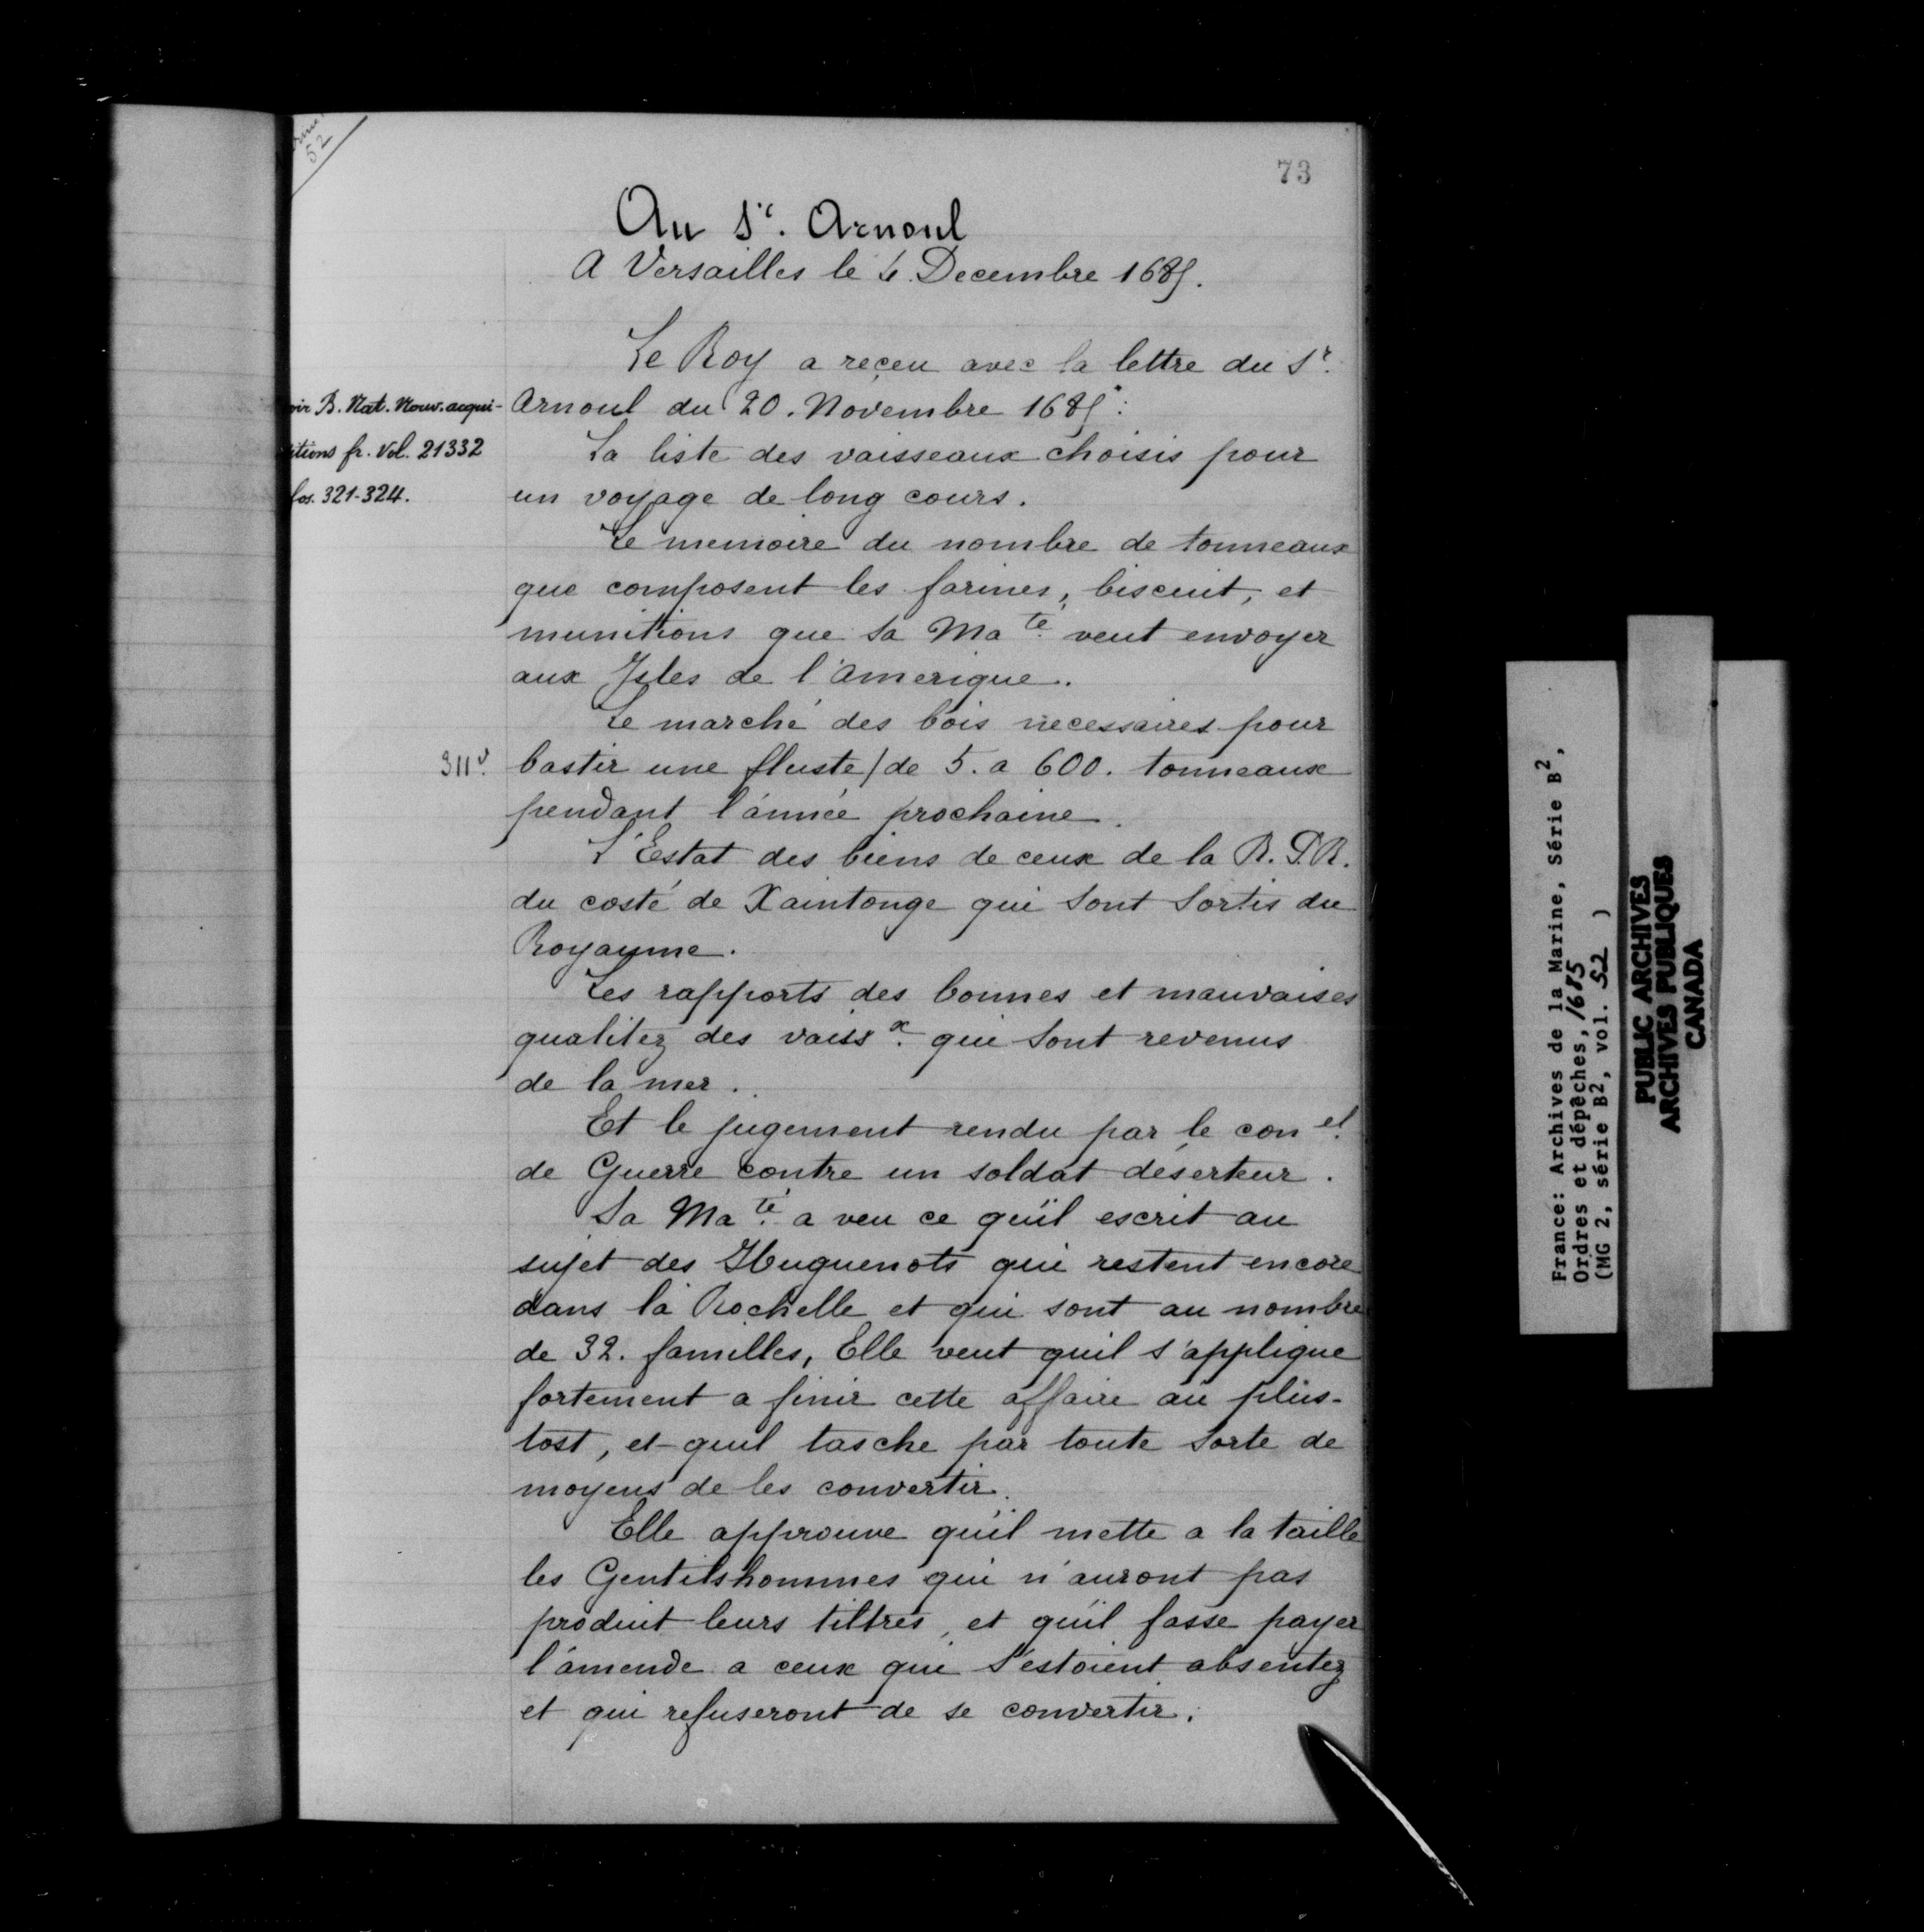 52
73
Au Sr. Arnoul
A Versailles le 4. Decembre 1685.
Le Roy a reçeu avec la lettre du Sr.
Arnoul du 20. Novembre 1685:
La liste des vaisseaux choisis pour
un voyage de long cours.
Le memoire du nombre de tonneaux
que composent les farines, biscuit, et
munitions que Sa Maté. veut envoyer
aux Isles de l'Amerique.
Le marché des bois necessaires pour
bastir une fluste/de 5. a 600. tonneaux
pendant l'année prochaine.
L'Estat des biens de ceux de la R.P.R.
du costé de Xaintonge qui sont sortis du
Royaume.
Les rapports des bonnes et mauvaises
qualitez des vaissx. qui sont revenus
de la mer.
Et le jugement rendu par le conel.
de Guerre contre un soldat déserteur.
Sa Maté. a veu ce qu'il escrit au
sujet des Huguenots qui restent encore
dans la Rochelle et qui sont au nombre
de 32. familles, Elle veut qu'il s'applique
fortement a finir cette affaire au plus-
tost, et quil tasche par toute sorte de
moyens de les convertir.
Elle approuve qu'il mette a la taille
les Gentilshommes qui n'auront pas
produit leurs tiltres, et qu'il fasse payer
l'amende a ceux qui s'estoient absentez
et qui refuseront de se convertir.
oir B. Nat. Nouv. acqui-
itions fr. Vol. 21332
fos. 321-324.
311v.
France: Archives de la Marine, Série B2,
Ordres et dépêches, 1685
(MG 2, série B2, vol. 52 )
PUBLIC ARCHIVES
ARCHIVES PUBLIQUES
CANADA